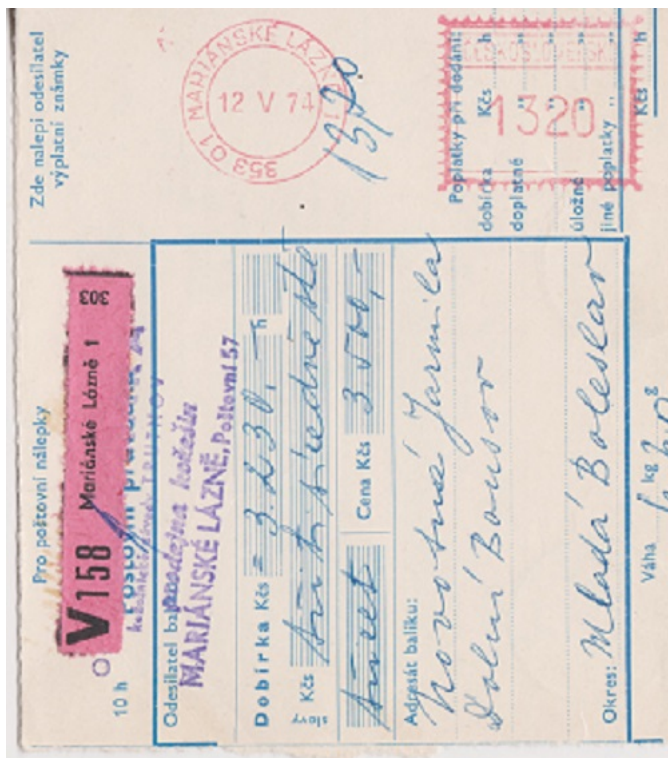 Zde nalepí odesílatel
výplatní známky
353 01 MARIÁNSKÉ LÁZNĚ 1
12 V 74
13,20
ČESKOSLOVENSKO
1320
Poplatky při dodání:
dobírka Kčs h
doplatné " "
úložné " "
jiné poplatky " "
Kčs h
Pro poštovní nálepky
V158 Mariánské Lázně 1 303
Poštovní
TRUTNOV
10 h
Odesílatel
prodejna kožešin
MARIÁNSKÉ LÁZNĚ, Poštovní 57
Dobírka Kčs = 3.230,- h
slovy Kčs
třicet
Cena Kčs 3.500,-
Adresát balíku:
Novotná Jarmila
Dolní Bousov
Okres: Mladá Boleslav
Váha kg g